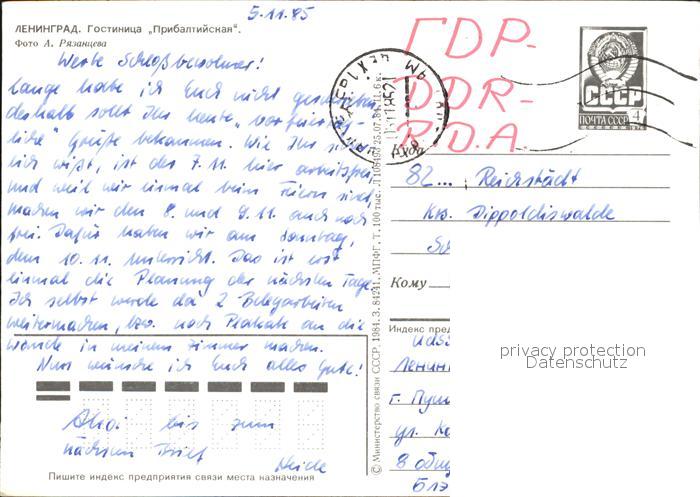 5.11.85
ЛЕНИНГРАД. Гостиница „Прибалтийская“.
Фото А. Рязанцева
Werte Schloßbewohner!
Lange habe ich Euch nicht geschrieben,
deshalb sollt Ihr heute „vorfeier-
liche" Grüße bekommen. Wie Ihr sicher-
lich wißt, ist der 7.11. hier arbeitsfrei
und weil wir einmal beim Feiern sind,
machen wir den 8. und 9.11. auch noch
frei. Dafür haben wir am Sonntag,
dem 10.11. Unterricht. Das ist erst
einmal die Planung der nächsten Tage.
Ich selbst werde da 2 Belegarbeiten
weitermachen, bzw. noch Plakate an die
Wände in meinem Zimmer machen.
Nun wünsche ich Euch alles Gute!
Ahoi bis zum
nächsten Brief
Heide
Пишите индекс предприятия связи места назначения
© Министерство связи СССР. 1984. З. 84241. МПФГ. Т. 100 тыс.
ГДР-
DDR-
R.D.A.
СССР
ПОЧТА СССР
4
82... Reichstädt
Krs. Dippoldiswalde
Кому
Индекс пред
UdSS
Ленинг
г. Пуш
ул.
8 общ
privacy protection
Datenschutz